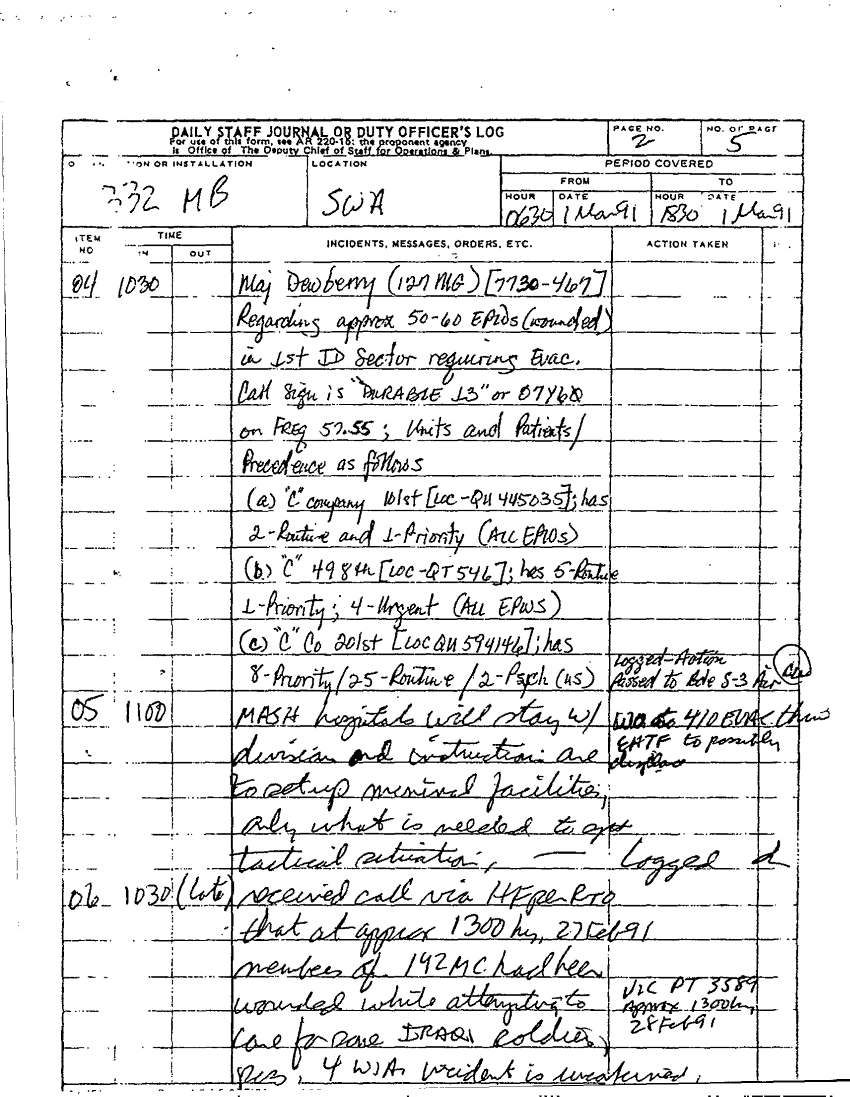 DAILY STAFF JOURNAL OR DUTY OFFICER'S LOG
For use of this form, see AR 220-15; the proponent agency
is Office of The Deputy Chief of Staff for Operations & Plans.
PAGE NO.
2
NO. OF PAGE
5
ION OR INSTALLATION
332 MB
LOCATION
SWA
PERIOD COVERED
FROM
TO
HOUR
0630
DATE
1 Mar 91
HOUR
1830
DATE
1 Mar 91
ITEM NO
TIME
IN
OUT
INCIDENTS, MESSAGES, ORDERS, ETC.
ACTION TAKEN
04 1030 Maj Dewberry (127 MG) [7730-467]
Regarding approx 50-60 EPWs (wounded)
in 1st ID Sector requiring Evac.
Call Sign is "DURABLE 13" or 07Y6Q
on FREQ 57.55; Units and Patients/
Precedence as follows
(a) "C" company 101st [LOC-QU 445035]; has
2-Routine and 1-Priority (ALL EPWs)
(b) "C" 498th [LOC-QT546]; has 5-Routine
1-Priority; 4-Urgent (ALL EPWS)
(c) "C" Co 201st [LOC QU 594146]; has
8-Priority/25-Routine/2-Psych (US)
Logged-Action
Passed to Bde S-3 Air
05 1100 MASH hospitals will stay w/
division and instructions are
to set up minimal facilities,
only what is needed to
tactical situation, — Logged
410 EVAC
EATF to possibly
06 1030 (Late) received call via HF per RTO
that at approx 1300 hrs, 27 Feb 91
members of 142 MC had been
wounded while attempting to
care for some IRAQI soldiers,
4 WIA. Incident is unconfirmed.
VIC PT 3589
Approx 1300 hrs
28 Feb 91